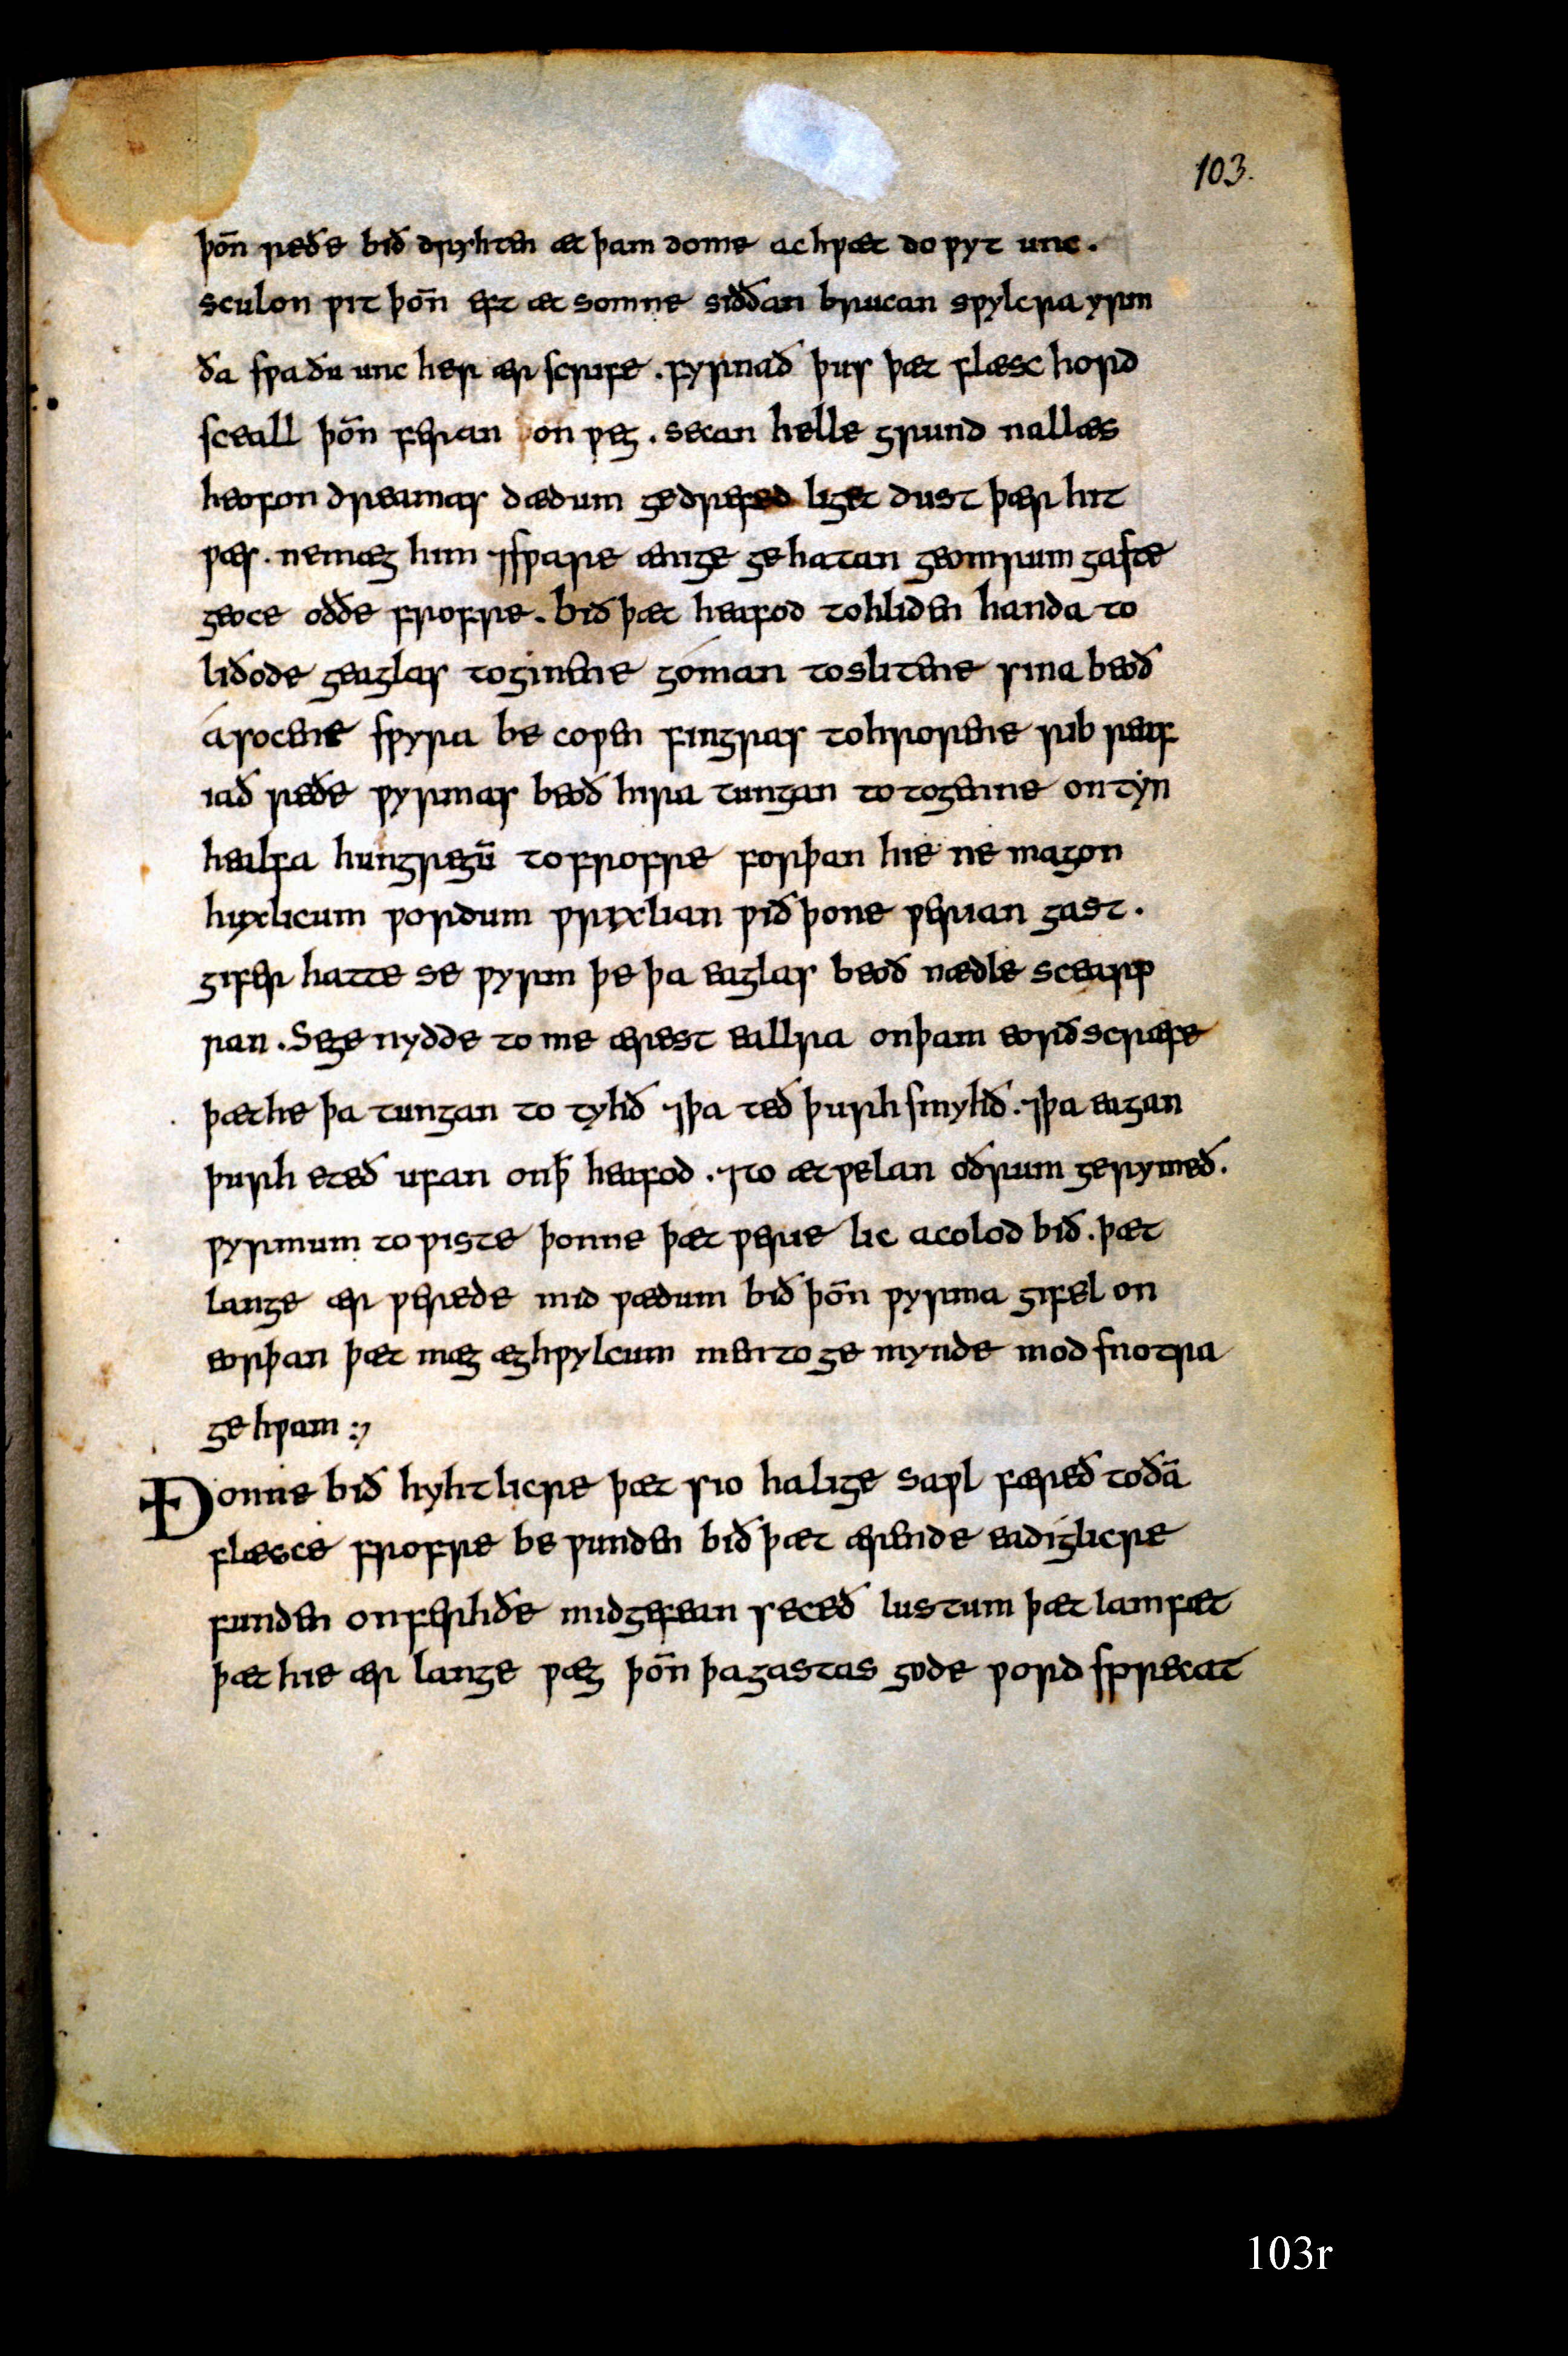 103.
þoñ reðe bið dryhten æt þam dome ac hƿæt do ƿyt unc.
sculon ƿit þoñ eft æt somne siððan brucan sƿylcra yrm
ða sƿa ðu unc her ær scrife. fyrnað þus þæt flæsc hord
sceall þoñ feran on ƿeg. secan helle grund nallæs
heofon dreamas dædum gedrefed liget dust þær hit
ƿæs. nemæg him ⁊sƿare ænige gehatan geomrum gaste
geoce oððe frofre. bið þæt heafod tohliden handa to
liðode geaglas toginene góman toslitene sina beoð
ásocene sƿyra be coƿen fingras tohrorene rib reaf
iað reðe ƿyrmas beoð hira tungan to togenne on tyn
healfa hungregū to frofre forþan hie ne magon
huxlicum ƿordum ƿrixlian ƿið þone ƿerian gast.
gifer hatte se ƿyrm þe þa eaglas beoð nædle scearp
ran. Se ge nydde to me ærest eallra on þam eorðscræfe
þæt he þa tungan to tyhð ⁊þa teð þurh smyhð. ⁊þa eagan
þurh eteð ufan on ꝥ heafod. ⁊to ætƿelan oðrum gerymeð.
ƿyrmum to ƿiste þonne þæt ƿerie lic acolod bið. þæt
lange ær ƿerede mid ƿædum bið þoñ ƿyrma gifel on
eorþan þæt mæg æghƿylcum men to ge mynde mod snotra
ge hƿam :⁊
Ðonne bið hyhtlicre þæt sio halige saƿl færeð to ðā
flæsce frofre be ƿunden bið þæt ærende eadiglicre
funden on ferhðe mid gefean seceð lustum þæt lamfæt
þæt hie ær lange ƿæg þoñ þa gastas gode ƿord sprecat
103r